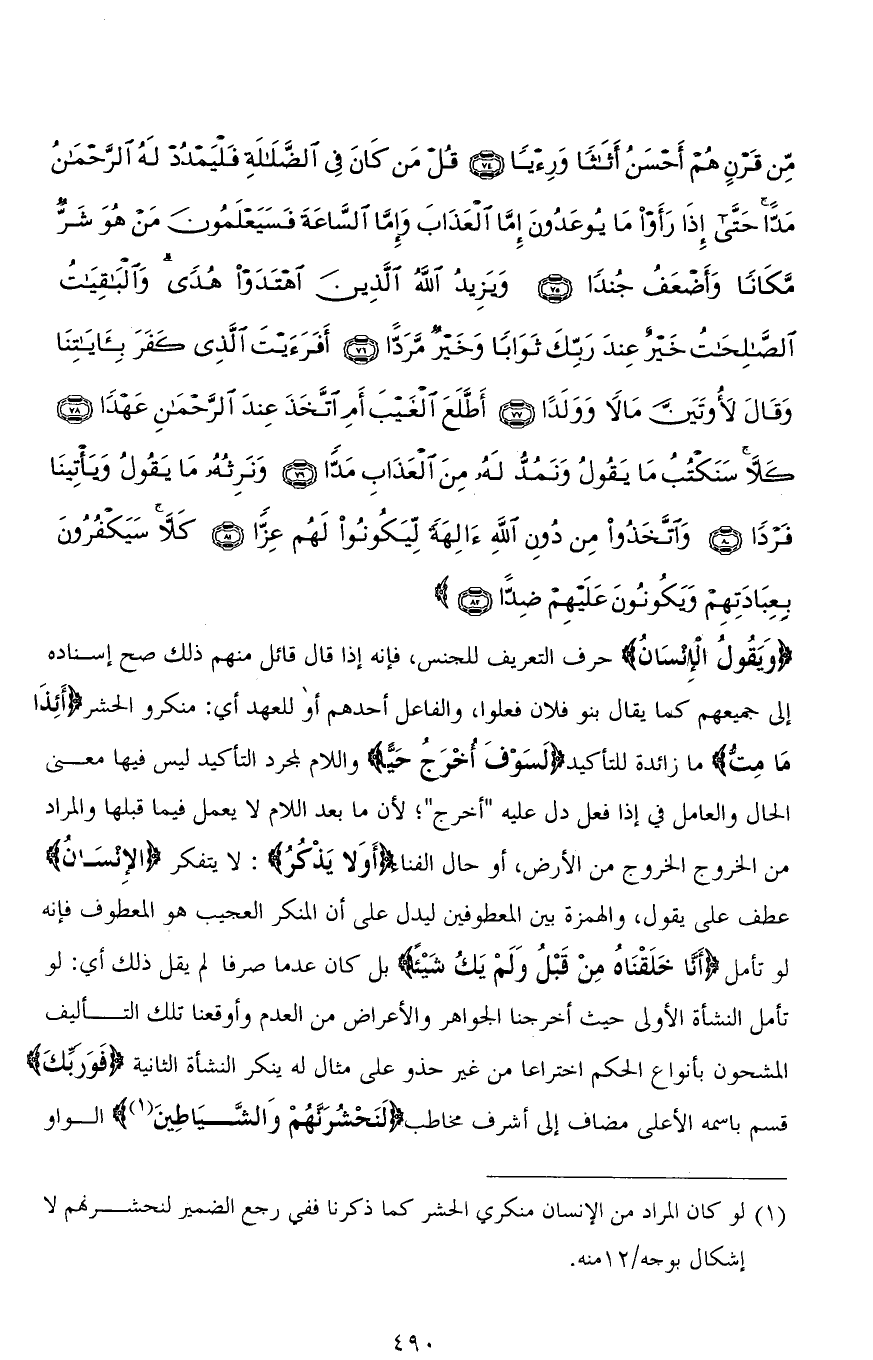 مِّن قَرْنٍ هُمْ أَحْسَنُ أَثَٰثًا وَرِءْيًا ﴿٧٤﴾ قُلْ مَن كَانَ فِى ٱلضَّلَٰلَةِ فَلْيَمْدُدْ لَهُ ٱلرَّحْمَٰنُ
مَدًّا ۚ حَتَّىٰٓ إِذَا رَأَوْا۟ مَا يُوعَدُونَ إِمَّا ٱلْعَذَابَ وَإِمَّا ٱلسَّاعَةَ فَسَيَعْلَمُونَ مَنْ هُوَ شَرٌّ
مَّكَانًا وَأَضْعَفُ جُندًا ﴿٧٥﴾ وَيَزِيدُ ٱللَّهُ ٱلَّذِينَ ٱهْتَدَوْا۟ هُدًى ۗ وَٱلْبَٰقِيَٰتُ
ٱلصَّٰلِحَٰتُ خَيْرٌ عِندَ رَبِّكَ ثَوَابًا وَخَيْرٌ مَّرَدًّا ﴿٧٦﴾ أَفَرَءَيْتَ ٱلَّذِى كَفَرَ بِـَٔايَٰتِنَا
وَقَالَ لَأُوتَيَنَّ مَالًا وَوَلَدًا ﴿٧٧﴾ أَطَّلَعَ ٱلْغَيْبَ أَمِ ٱتَّخَذَ عِندَ ٱلرَّحْمَٰنِ عَهْدًا ﴿٧٨﴾
كَلَّا ۚ سَنَكْتُبُ مَا يَقُولُ وَنَمُدُّ لَهُۥ مِنَ ٱلْعَذَابِ مَدًّا ﴿٧٩﴾ وَنَرِثُهُۥ مَا يَقُولُ وَيَأْتِينَا
فَرْدًا ﴿٨٠﴾ وَٱتَّخَذُوا۟ مِن دُونِ ٱللَّهِ ءَالِهَةً لِّيَكُونُوا۟ لَهُمْ عِزًّا ﴿٨١﴾ كَلَّا ۚ سَيَكْفُرُونَ
بِعِبَادَتِهِمْ وَيَكُونُونَ عَلَيْهِمْ ضِدًّا ﴿٨٢﴾ ﴾
﴿وَيَقُولُ الْإِنْسَانُ﴾ حرف التعريف للجنس، فإنه إذا قال قائل منهم ذلك صح إسناده
إلى جميعهم كما يقال بنو فلان فعلوا، والفاعل أحدهم أو للعهد أي: منكرو الحشر﴿أَئِذَا
مَا مِتُّ﴾ ما زائدة للتأكيد﴿لَسَوْفَ أُخْرَجُ حَيًّا﴾ واللام لمجرد التأكيد ليس فيها معنى
الحال والعامل في إذا فعل دل عليه "أخرج"؛ لأن ما بعد اللام لا يعمل فيما قبلها والمراد
من الخروج الخروج من الأرض، أو حال الفناء﴿أَوَلا يَذْكُرُ﴾ : لا يتفكر ﴿الإِنْسَانُ﴾
عطف على يقول، والهمزة بين المعطوفين ليدل على أن المنكر العجيب هو المعطوف فإنه
لو تأمل ﴿أَنَّا خَلَقْنَاهُ مِنْ قَبْلُ وَلَمْ يَكُ شَيْئًا﴾ بل كان عدما صرفا لم يقل ذلك أي: لو
تأمل النشأة الأولى حيث أخرجنا الجواهر والأعراض من العدم وأوقعنا تلك التأليف
المشحون بأنواع الحكم اختراعا من غير حذو على مثال له ينكر النشأة الثانية ﴿فَوَرَبِّكَ﴾
قسم باسمه الأعلى مضاف إلى أشرف مخاطب﴿لَنَحْشُرَنَّهُمْ وَالشَّيَاطِينَ(١)﴾ الواو
(١) لو كان المراد من الإنسان منكري الحشر كما ذكرنا ففي رجع الضمير لنحشرنهم لا
إشكال بوجه/١٢منه.
٤٩٠